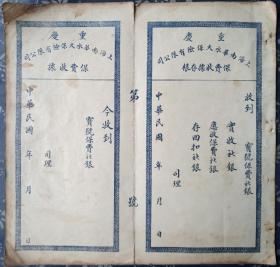 重慶
上海南華水火保險有限公司
保費收據存根
收到
寶號保費社銀
實收社銀
應收保費社銀
存回扣社銀
司理
中華民國 年 月 日
第 號
重慶
上海南華水火保險有限公司
保費收據
今收到
寶號保費社銀
司理
中華民國 年 月 日